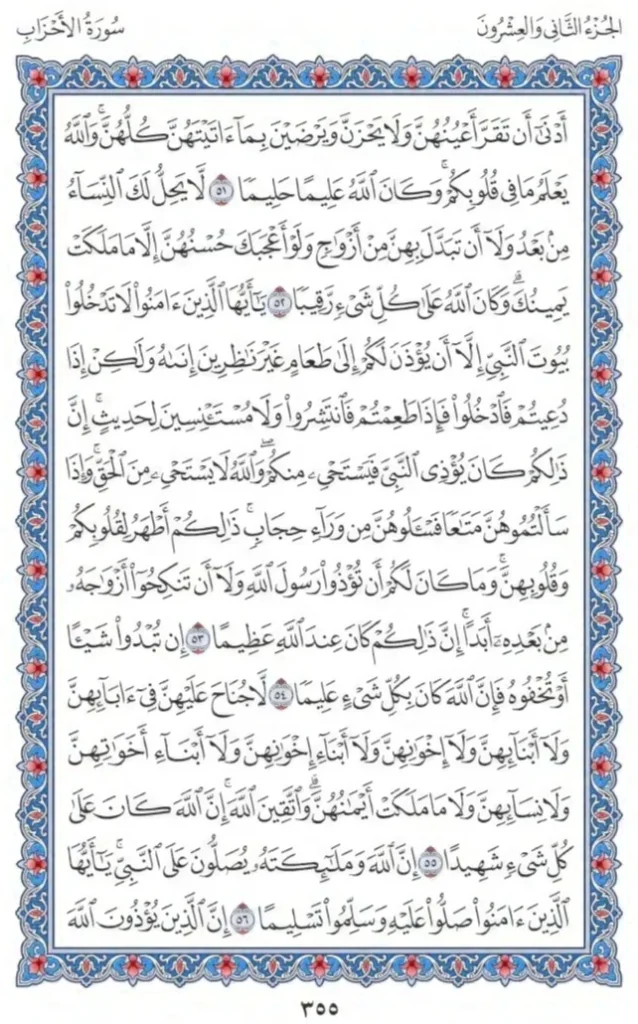 الجُزْءُ الثَّانِي وَالعِشْرُونَ سُورَةُ الأَحْزَابِ
أَدْنَىٰٓ أَن تَقَرَّ أَعْيُنُهُنَّ وَلَا يَحْزَنَّ وَيَرْضَيْنَ بِمَآ ءَاتَيْتَهُنَّ كُلُّهُنَّ ۚ وَٱللَّهُ
يَعْلَمُ مَا فِى قُلُوبِكُمْ ۚ وَكَانَ ٱللَّهُ عَلِيمًا حَلِيمًا ٥١ لَّا يَحِلُّ لَكَ ٱلنِّسَآءُ
مِنۢ بَعْدُ وَلَآ أَن تَبَدَّلَ بِهِنَّ مِنْ أَزْوَٰجٍ وَلَوْ أَعْجَبَكَ حُسْنُهُنَّ إِلَّا مَا مَلَكَتْ
يَمِينُكَ ۗ وَكَانَ ٱللَّهُ عَلَىٰ كُلِّ شَىْءٍ رَّقِيبًا ٥٢ يَٰٓأَيُّهَا ٱلَّذِينَ ءَامَنُوا۟ لَا تَدْخُلُوا۟
بُيُوتَ ٱلنَّبِىِّ إِلَّآ أَن يُؤْذَنَ لَكُمْ إِلَىٰ طَعَامٍ غَيْرَ نَٰظِرِينَ إِنَىٰهُ وَلَٰكِنْ إِذَا
دُعِيتُمْ فَٱدْخُلُوا۟ فَإِذَا طَعِمْتُمْ فَٱنتَشِرُوا۟ وَلَا مُسْتَـْٔنِسِينَ لِحَدِيثٍ ۚ إِنَّ
ذَٰلِكُمْ كَانَ يُؤْذِى ٱلنَّبِىَّ فَيَسْتَحْىِۦ مِنكُمْ ۖ وَٱللَّهُ لَا يَسْتَحْىِۦ مِنَ ٱلْحَقِّ ۚ وَإِذَا
سَأَلْتُمُوهُنَّ مَتَٰعًا فَسْـَٔلُوهُنَّ مِن وَرَآءِ حِجَابٍ ۚ ذَٰلِكُمْ أَطْهَرُ لِقُلُوبِكُمْ
وَقُلُوبِهِنَّ ۚ وَمَا كَانَ لَكُمْ أَن تُؤْذُوا۟ رَسُولَ ٱللَّهِ وَلَآ أَن تَنكِحُوٓا۟ أَزْوَٰجَهُۥ
مِنۢ بَعْدِهِۦٓ أَبَدًا ۚ إِنَّ ذَٰلِكُمْ كَانَ عِندَ ٱللَّهِ عَظِيمًا ٥٣ إِن تُبْدُوا۟ شَيْـًٔا
أَوْ تُخْفُوهُ فَإِنَّ ٱللَّهَ كَانَ بِكُلِّ شَىْءٍ عَلِيمًا ٥٤ لَّا جُنَاحَ عَلَيْهِنَّ فِىٓ ءَابَآئِهِنَّ
وَلَآ أَبْنَآئِهِنَّ وَلَآ إِخْوَٰنِهِنَّ وَلَآ أَبْنَآءِ إِخْوَٰنِهِنَّ وَلَآ أَبْنَآءِ أَخَوَٰتِهِنَّ
وَلَا نِسَآئِهِنَّ وَلَا مَا مَلَكَتْ أَيْمَٰنُهُنَّ ۗ وَٱتَّقِينَ ٱللَّهَ ۚ إِنَّ ٱللَّهَ كَانَ عَلَىٰ
كُلِّ شَىْءٍ شَهِيدًا ٥٥ إِنَّ ٱللَّهَ وَمَلَٰٓئِكَتَهُۥ يُصَلُّونَ عَلَى ٱلنَّبِىِّ ۚ يَٰٓأَيُّهَا
ٱلَّذِينَ ءَامَنُوا۟ صَلُّوا۟ عَلَيْهِ وَسَلِّمُوا۟ تَسْلِيمًا ٥٦ إِنَّ ٱلَّذِينَ يُؤْذُونَ ٱللَّهَ
٣٥٥